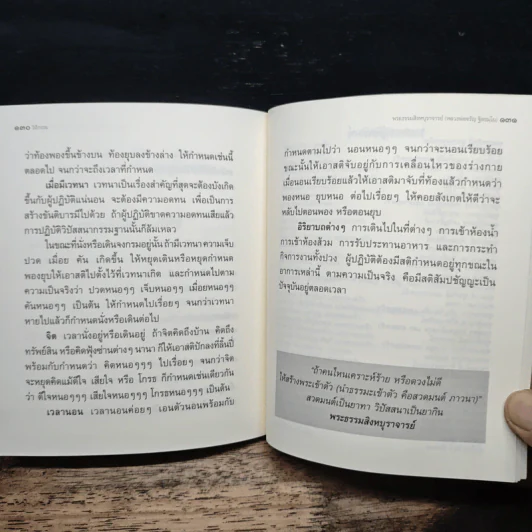 ๑๓๐
ว่าท้องพองขึ้นข้างบน ท้องยุบลงข้างล่าง ให้กำหนดเช่นนี้
ตลอดไป จนกว่าจะถึงเวลาที่กำหนด
เมื่อมีเวทนา เวทนาเป็นเรื่องสำคัญที่สุดจะต้องบังเกิด
ขึ้นกับผู้ปฏิบัติแน่นอน จะต้องมีความอดทน เพื่อเป็นการ
สร้างขันติบารมีไปด้วย ถ้าผู้ปฏิบัติขาดความอดทนเสียแล้ว
การปฏิบัติวิปัสสนากรรมฐานนั้นก็ล้มเหลว
ในขณะที่นั่งหรือเดินจงกรมอยู่นั้น ถ้ามีเวทนาความเจ็บ
ปวด เมื่อย คัน เกิดขึ้น ให้หยุดเดินหรือหยุดกำหนด
พองยุบให้เอาสติไปตั้งไว้ที่เวทนาเกิด และกำหนดไปตาม
ความเป็นจริงว่า ปวดหนอๆๆ เจ็บหนอๆๆ เมื่อยหนอๆๆ
คันหนอๆๆ เป็นต้น ให้กำหนดไปเรื่อยๆ จนกว่าเวทนา
หายไปแล้วก็กำหนดนั่งหรือเดินต่อไป
จิต เวลานั่งอยู่หรือเดินอยู่ ถ้าจิตคิดถึงบ้าน คิดถึง
ทรัพย์สิน หรือคิดฟุ้งซ่านต่างๆ นานา ก็ให้เอาสติปักลงที่ลิ้นปี่
พร้อมกับกำหนดว่า คิดหนอๆๆๆ ไปเรื่อยๆ จนกว่าจิต
จะหยุดคิดแม้ดีใจ เสียใจ หรือ โกรธ ก็กำหนดเช่นเดียวกัน
ว่า ดีใจหนอๆๆๆ เสียใจหนอๆๆๆ โกรธหนอๆๆๆ เป็นต้น
เวลานอน เวลานอนค่อยๆ เอนตัวนอนพร้อมกับ
พระธรรมสิงหบุราจารย์ (หลวงพ่อจรัญ ฐิตธมฺโม) ๑๓๑
กำหนดตามไปว่า นอนหนอๆๆ จนกว่าจะนอนเรียบร้อย
ขณะนั้นให้เอาสติจับอยู่กับการเคลื่อนไหวของร่างกาย
เมื่อนอนเรียบร้อยแล้วให้เอาสติมาจับที่ท้องแล้วกำหนดว่า
พองหนอ ยุบหนอ ต่อไปเรื่อยๆ ให้คอยสังเกตให้ดีว่าจะ
หลับไปตอนพอง หรือตอนยุบ
อิริยาบถต่างๆ การเดินไปในที่ต่างๆ การเข้าห้องน้ำ
การเข้าห้องส้วม การรับประทานอาหาร และการกระทำ
กิจการงานทั้งปวง ผู้ปฏิบัติต้องมีสติกำหนดอยู่ทุกขณะใน
อาการเหล่านี้ ตามความเป็นจริง คือมีสติสัมปชัญญะเป็น
ปัจจุบันอยู่ตลอดเวลา
"ถ้าคนไหนเคราะห์ร้าย หรือดวงไม่ดี
ให้สร้างพระเข้าตัว (นำธรรมะเข้าตัว คือสวดมนต์ ภาวนา)"
สวดมนต์เป็นยาทา วิปัสสนาเป็นยากิน
พระธรรมสิงหบุราจารย์